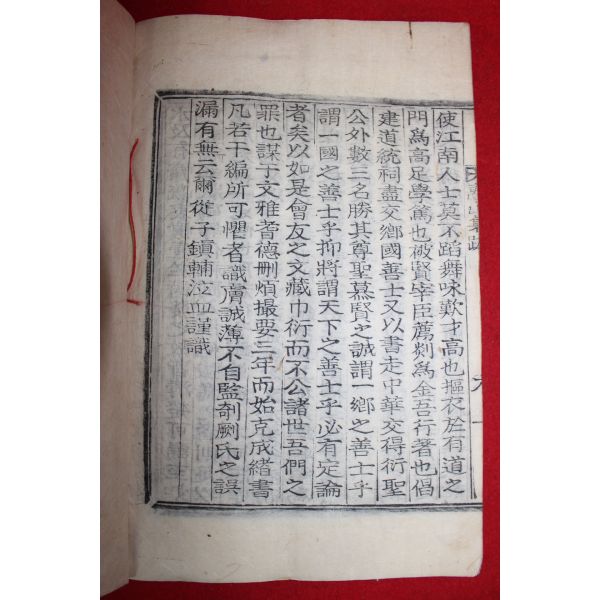 使江南人士莫不蹈舞咏歎才高也摳衣於有道之
門爲高足學篤也被賢宰臣薦剡爲金吾行著也倡
建道統祠盡交鄕國善士又以書走中華交得衍聖
公外數三名勝其尊聖慕賢之誠謂一鄕之善士乎
謂一國之善士乎抑將謂天下之善士乎必有定論
者矣以如是會友之文藏巾衍而不公諸世吾們之
罪也謀于文雅耆德刪煩撮要三年而始克成緖書
凡若干編所可懼者識膚誠薄不自監剞劂氏之誤
漏有無云爾從子鎭輔泣血謹識